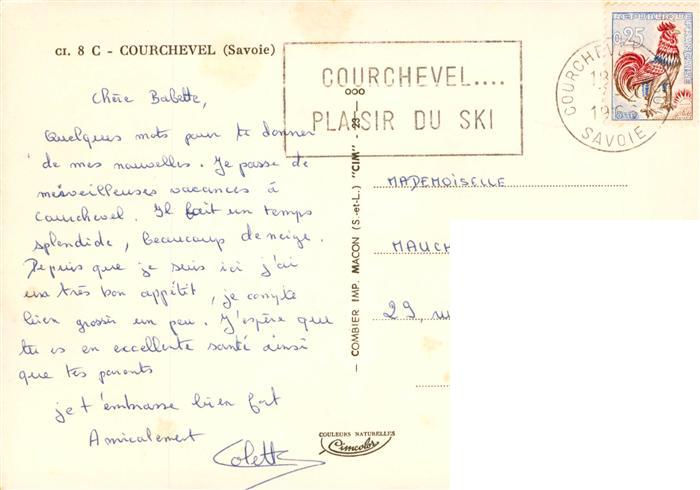 CI. 8 C - COURCHEVEL (Savoie)
COURCHEVEL....
PLAISIR DU SKI
COURCHEVEL
18
196
SAVOIE
0,25
Chère Babette,
Quelques mots pour te donner
de mes nouvelles. Je passe de
merveilleuses vacances à
Courchevel. Il fait un temps
splendide, beaucoup de neige.
Depuis que je suis ici j'ai
un très bon appétit, je compte
bien grossir un peu. J'espère que
tu es en excellente santé ainsi
que tes parents
je t'embrasse bien fort
Amicalement
Colette
COMBIER IMP. MACON (S.-et-L.) "CIM"
MADEMOISELLE
MAUCH
29, ru
COULEURS NATURELLES
Cimcolor